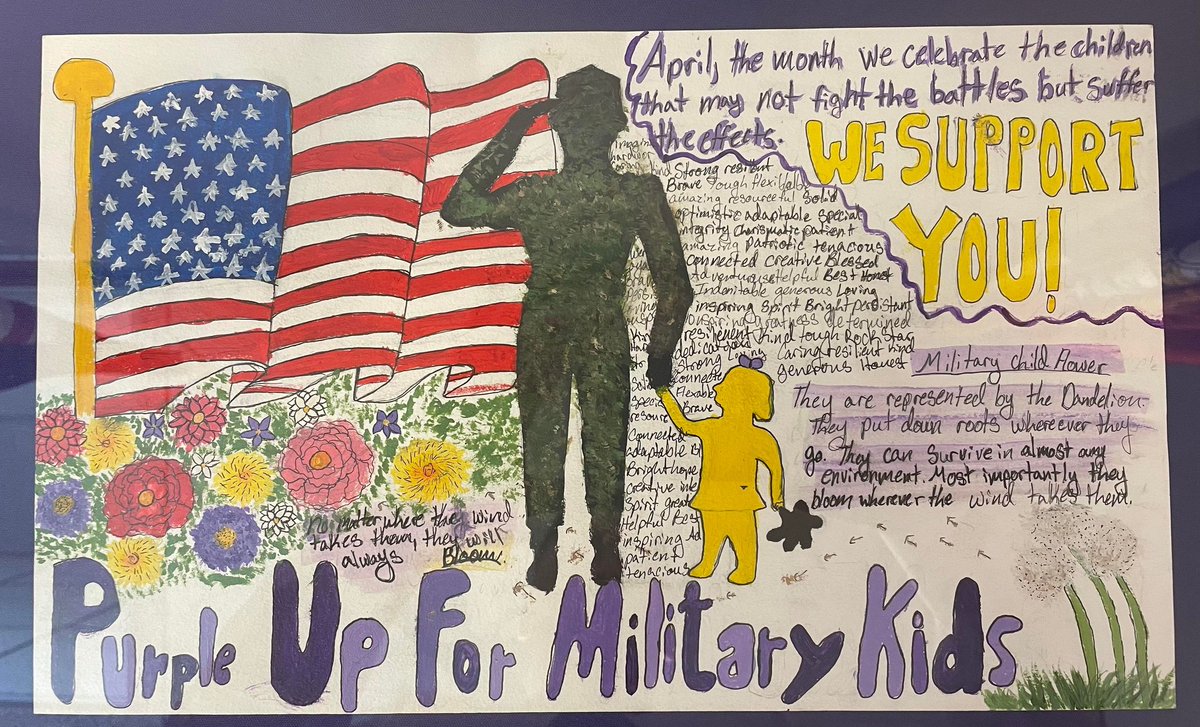 April, the month we celebrate the children
that may not fight the battles but suffer
the effects.
WE SUPPORT
YOU!
Strong resilient
Brave Tough flexible
amazing resourceful Solid
optimistic adaptable special
integrity Charismatic patient
amazing Patriotic tenacious
Connected Creative Blessed
Helpful Best Honest
generous Loving
inspiring Spirit Bright Persistant
greatness determined
kind tough Rock Star
Strong Loving Caring resilient kind
generous Honest
Flexible
Brave
Connected
adaptable
Bright hope
Creative
Spirit
Helpful
inspiring
patient
tenacious
Military child flower
They are represented by the Dandelion.
They put down roots whereever they
go. They can survive in almost any
environment. Most importantly they
bloom wherever the wind takes them.
no matter where the wind
takes them, they will
always Bloom
Purple Up For Military Kids